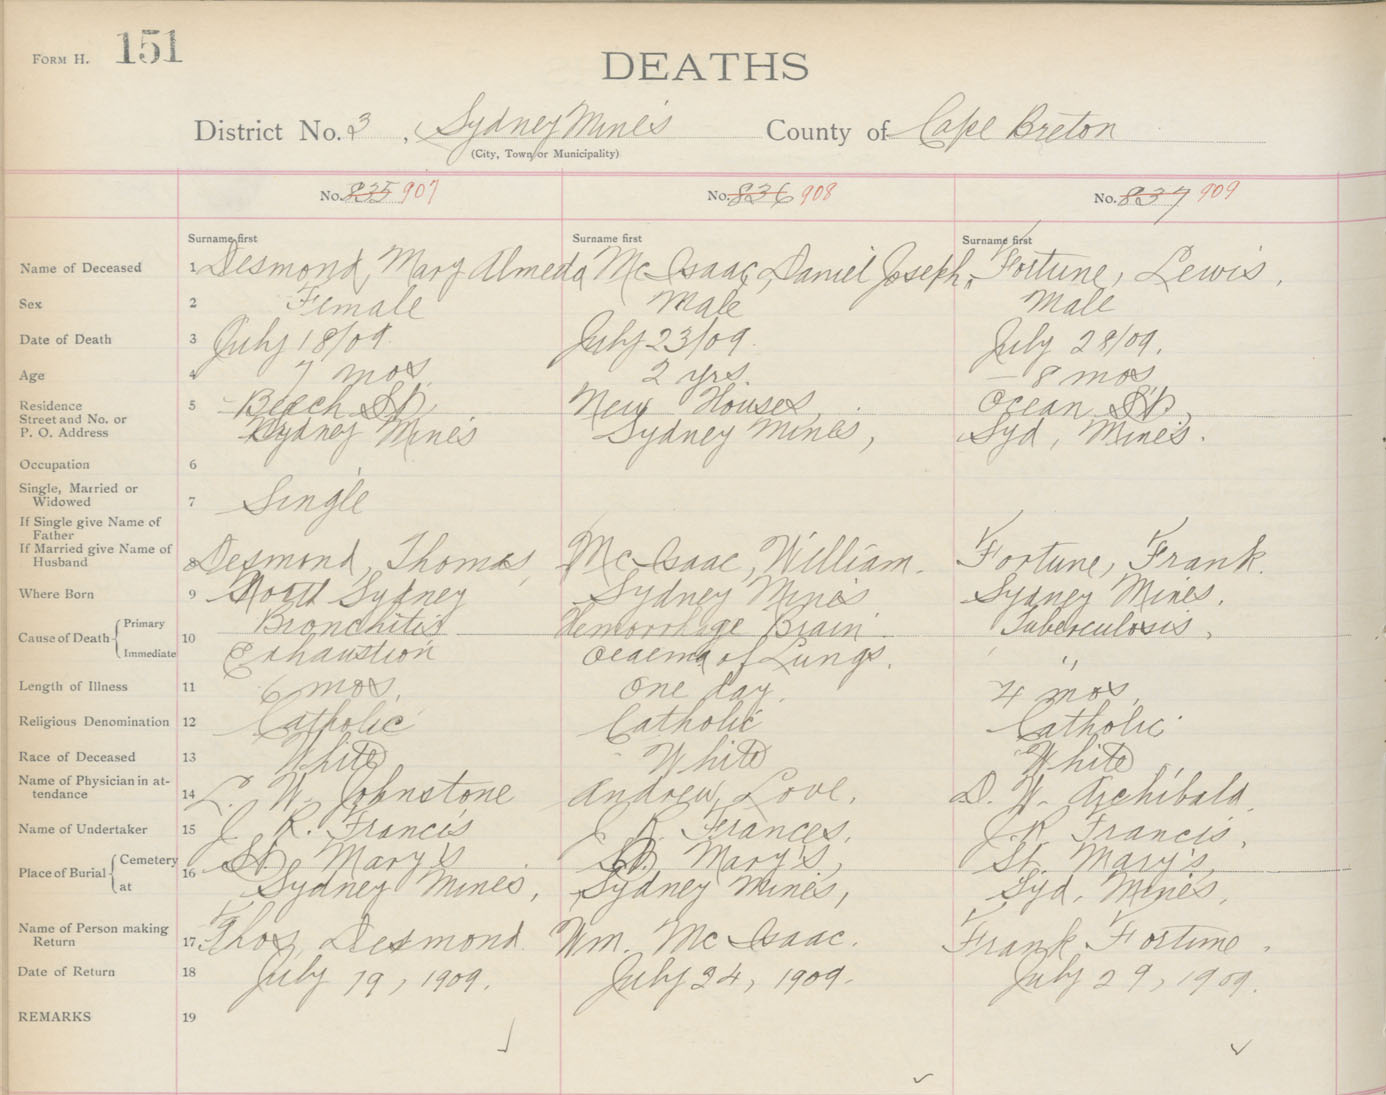 FORM H. 151
DEATHS
District No. 3, Sydney Mines County of Cape Breton
(City, Town or Municipality)
No. 835 907 No. 836 908 No. 837 909
Surname first Surname first Surname first
Name of Deceased 1 Desmond, Mary Almeda McIsaac, Daniel Joseph. Fortune, Lewis.
Sex 2 Female Male Male
Date of Death 3 July 18/09 July 23/09. July 28/09.
Age 4 7 mos. 2 yrs. 8 mos
Residence 5 Beach St, New Houses, Ocean St,
Street and No. or
P. O. Address Sydney Mines Sydney Mines, Syd, Mines.
Occupation 6
Single, Married or
Widowed 7 Single
If Single give Name of
Father
If Married give Name of
Husband 8 Desmond, Thomas, McIsaac, William. Fortune, Frank.
Where Born 9 North Sydney Sydney Mines Sydney Mines.
Cause of Death Primary 10 Bronchitis Hemorrhage Brain. Tuberculosis,
Immediate Exhaustion Oedema of Lungs. "
Length of Illness 11 6 mos. One day. 4 mos.
Religious Denomination 12 Catholic Catholic Catholic.
Race of Deceased 13 White White White
Name of Physician in at-
tendance 14 L. W. Johnstone Andrew Love. D. W. Archibald.
Name of Undertaker 15 J. R. Francis J. R. Frances. J. R. Francis,
Place of Burial Cemetery 16 St. Mary's St. Mary's, St. Mary's,
at Sydney Mines, Sydney Mines, Syd. Mines,
Name of Person making
Return 17 Thos, Desmond Wm. McIsaac. Frank Fortune.
Date of Return 18 July 19, 1909. July 24, 1909. July 29, 1909.
REMARKS 19